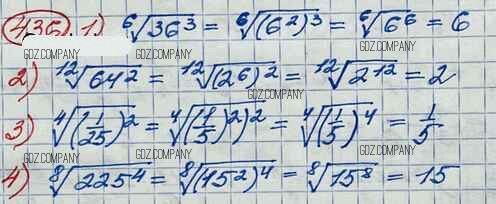 436. 1) ⁶√36³ = ⁶√(6²)³ = ⁶√6⁶ = 6
GDZ.COMPANY GDZ.COMPANY GDZ.COMPANY
2) ¹²√64² = ¹²√(2⁶)² = ¹²√2¹² = 2
GDZ.COMPANY GDZ.COMPANY
3) ⁴√(1/25)² = ⁴√((1/5)²)² = ⁴√(1/5)⁴ = 1/5
GDZ.COMPANY GDZ.COMPANY GDZ.COMPANY
4) ⁸√225⁴ = ⁸√(15²)⁴ = ⁸√15⁸ = 15
GDZ.COMPANY GDZ.COMPANY